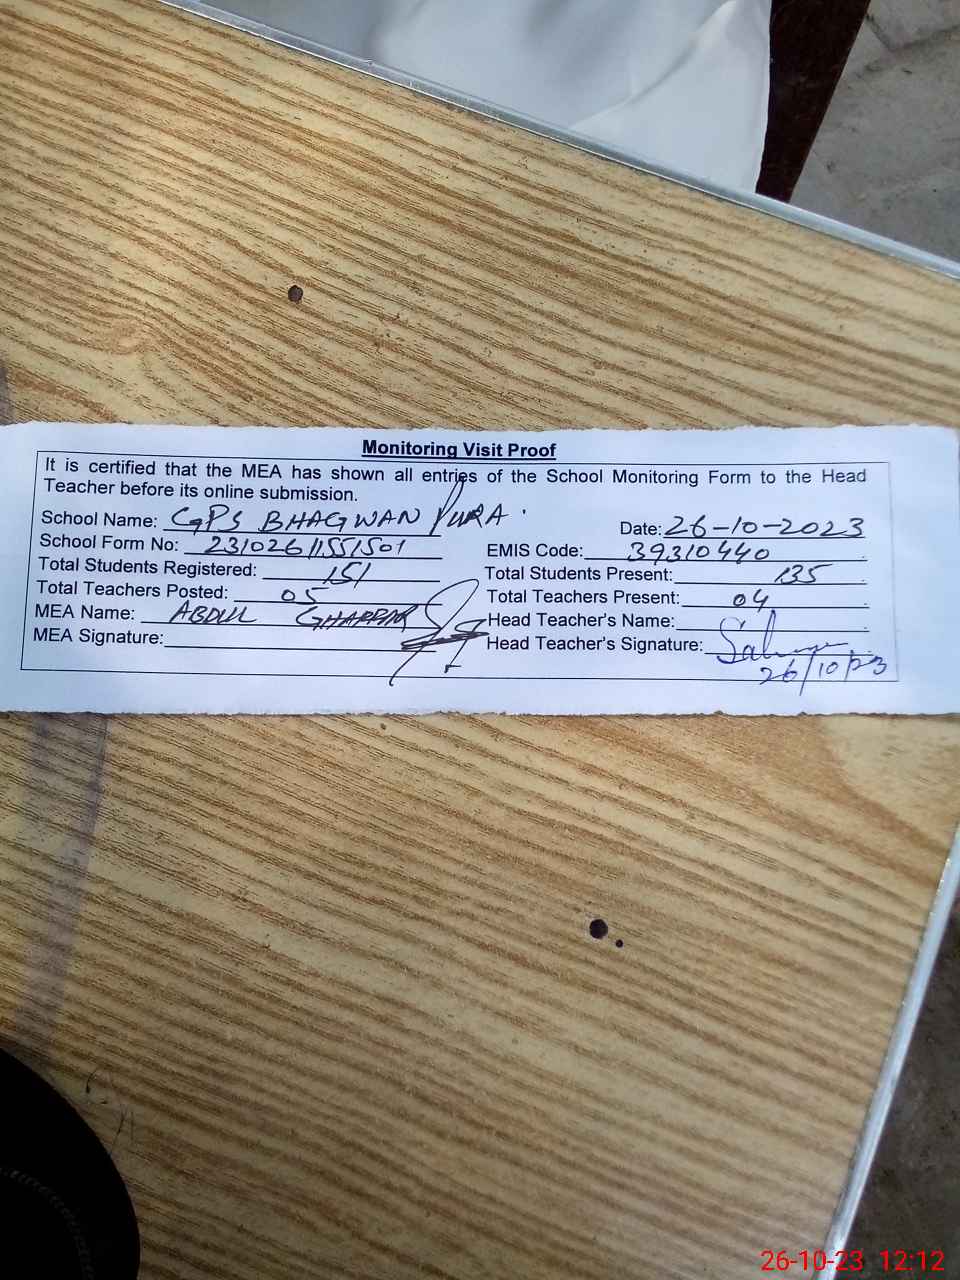 Monitoring Visit Proof
It is certified that the MEA has shown all entries of the School Monitoring Form to the Head
Teacher before its online submission.
School Name: GPS BHAGWAN PURA. Date: 26-10-2023
School Form No: 23102611551501 EMIS Code: 39310440
Total Students Registered: 151 Total Students Present: 135
Total Teachers Posted: 05 Total Teachers Present: 04
MEA Name: ABDUL GHAFFAR Head Teacher's Name:
MEA Signature: Head Teacher's Signature:
26/10/23
26-10-23 12:12